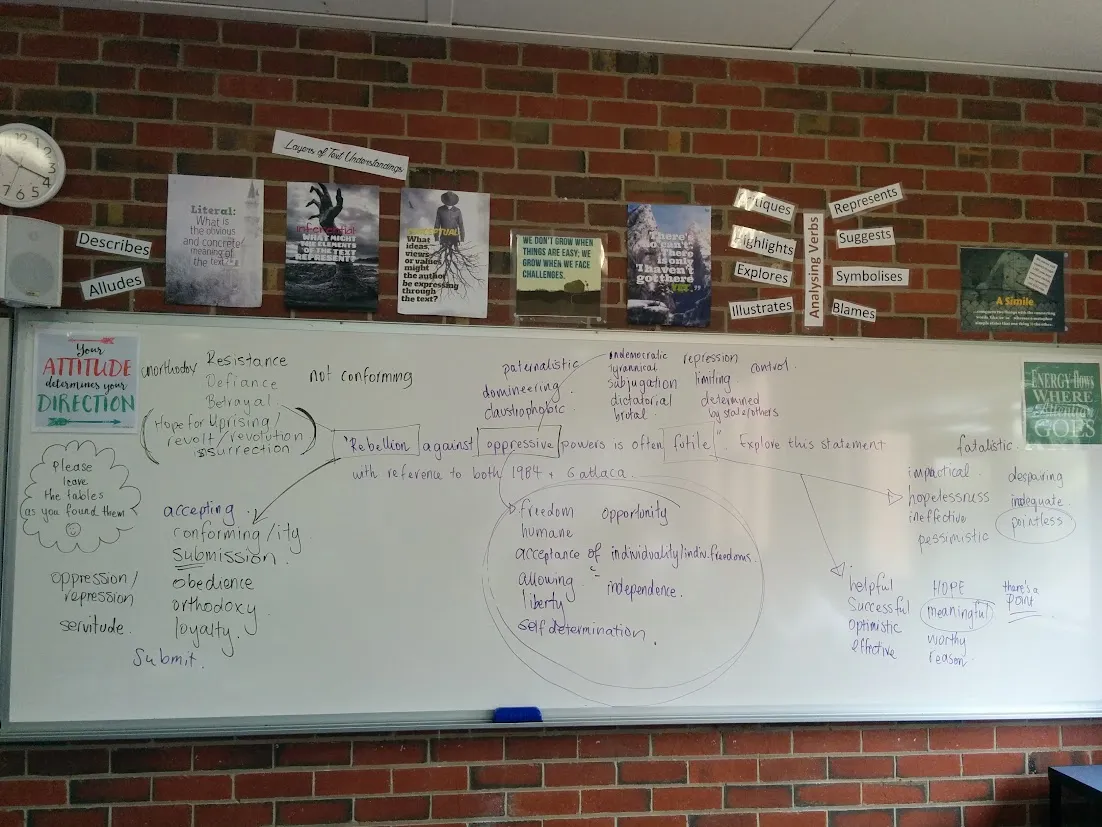 Layers of Text Understandings
12
3
4
5
6
7
Describes
Alludes
Literal:
What is
the obvious
and concrete
meaning of
the text?
Inferential
WHAT MIGHT
THE ELEMENTS
OF THE TEXT
REPRESENT?
CONCEPTUAL
What
ideas,
views
or values
might
the author
be expressing
through
the text?
WE DON'T GROW WHEN
THINGS ARE EASY; WE
GROW WHEN WE FACE
CHALLENGES.
There's
no can't.
There
is only
'I haven't
got there
YET."
Highlights
Explores
Illustrates
Analysing Verbs
Represents
Suggests
Symbolises
Blames
A Simile
Your
ATTITUDE
determines your
DIRECTION
ENERGY flows
WHERE
Attention
GOES
Please
leave
the tables
as you found them
unorthodoxy
Resistance
Defiance
Betrayal
Hope for Uprising/
revolt/revolution
insurrection
not conforming
paternalistic
domineering
claustrophobic
undemocratic
tyrannical
subjugation
dictatorial
brutal
repression
limiting
determined
by state/others
control
"Rebellion against oppressive powers is often futile". Explore this statement
with reference to both 1984 + Gattaca.
accepting
conforming/ity
submission
obedience
orthodoxy
loyalty
oppression/
repression
servitude
submit
freedom opportunity
humane
acceptance of individuality/indiv.freedoms
allowing independence.
liberty
self determination
fatalistic
impractical
hopelessness
ineffective
pessimistic
despairing
inadequate
pointless
helpful
successful
optimistic
effective
HOPE
meaningful
worthy
reason
there's a
POINT